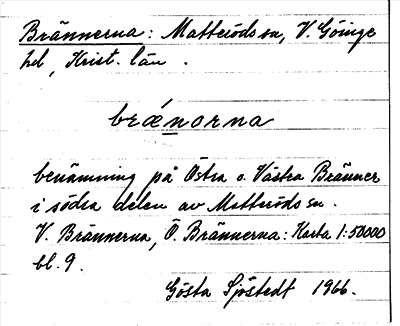 Brännerna: Matteröds sn, V. Göinge
hd, Krist. län.
brǽnorna
benämning på Östra o. Västra Bränner
i södra delen av Matteröds sn.
V. Brännerna, Ö. Brännerna: Karta 1:50000
bl. 9.
Gösta Sjöstedt 1966.